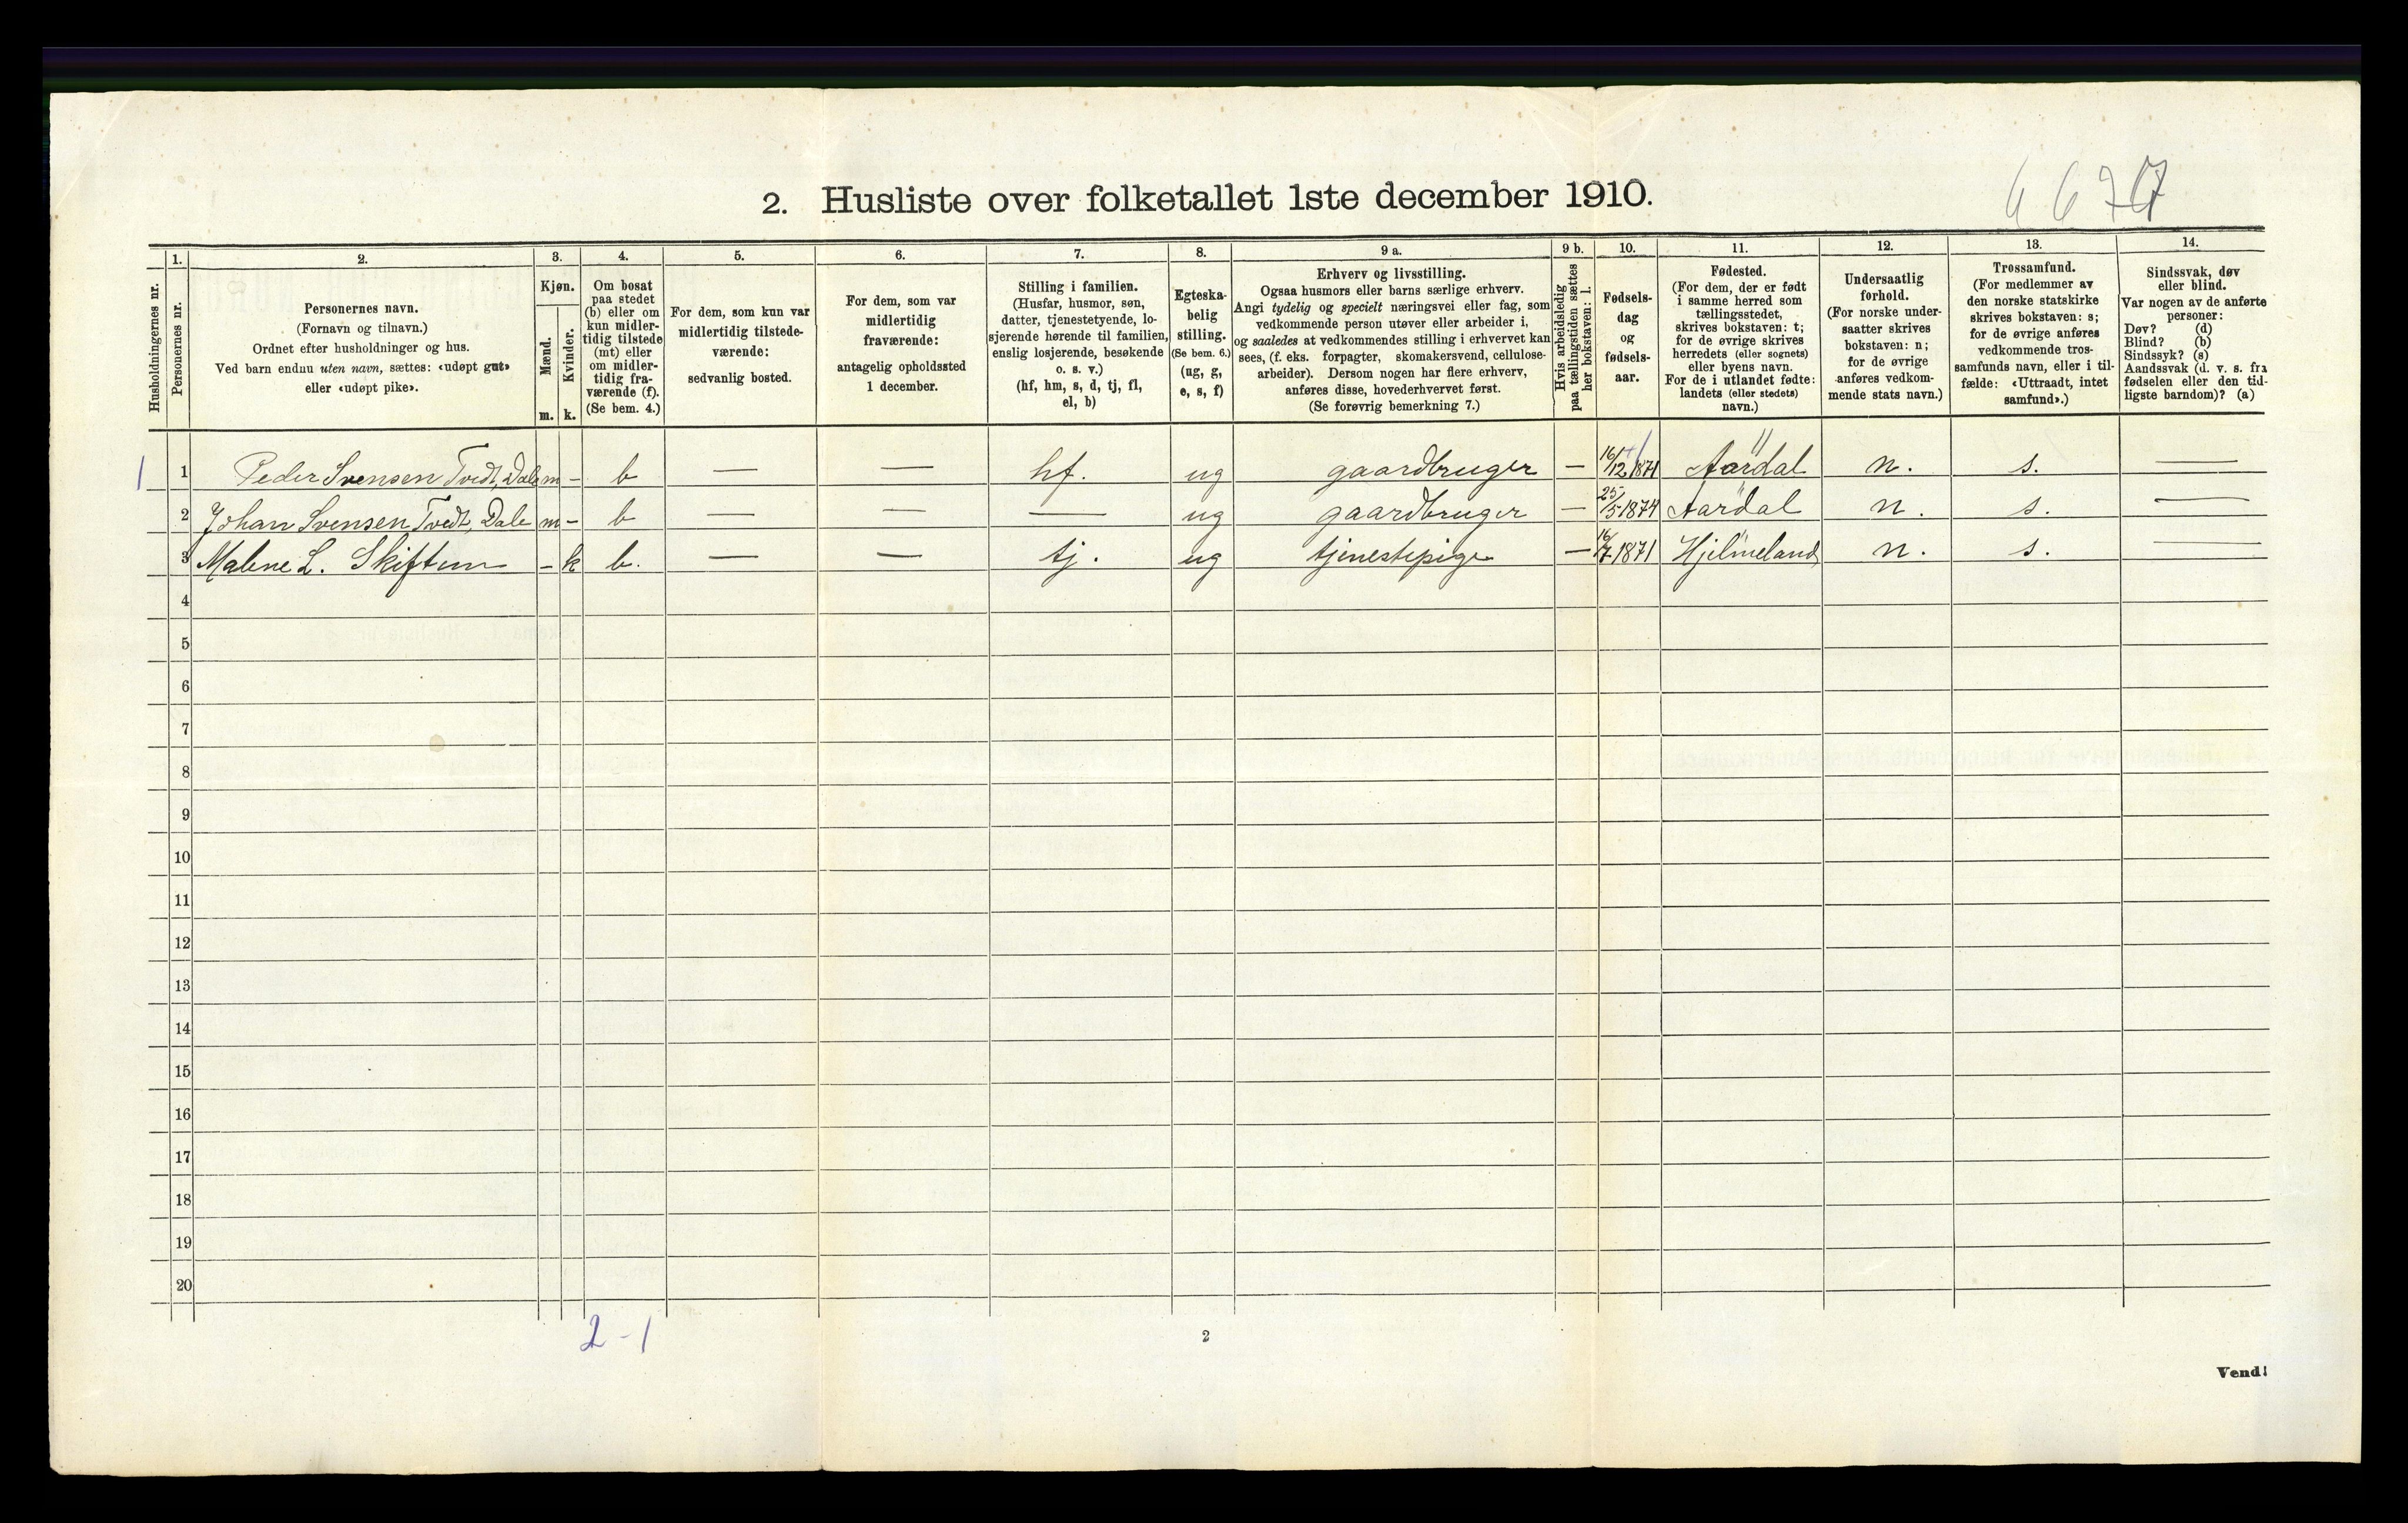 2. Husliste over folketallet 1ste december 1910.
1. 2. 3. 4. 5. 6. 7. 8. 9 a. 9 b. 10. 11. 12. 13. 14.
Husholdningernes nr.
Personernes nr.
Personernes navn.
(Fornavn og tilnavn.)
Ordnet efter husholdninger og hus.
Ved barn endnu uten navn, sættes: «udøpt gut»
eller «udøpt pike».
Kjøn.
Mænd.
Kvinder.
m. k.
Om bosat
paa stedet
(b) eller om
kun midler-
tidig tilstede
(mt) eller
om midler-
tidig fra-
værende (f).
(Se bem. 4.)
For dem, som kun var
midlertidig tilstede-
værende:
sedvanlig bosted.
For dem, som var
midlertidig
fraværende:
antagelig opholdssted
1 december.
Stilling i familien.
(Husfar, husmor, søn,
datter, tjenestetyende, lo-
sjerende hørende til familien,
enslig losjerende, besøkende
o. s. v.)
(hf, hm, s, d, tj, fl,
el, b)
Egteska-
belig
stilling.
(Se bem. 6.)
(ug, g,
e, s, f)
Erhverv og livsstilling.
Ogsaa husmors eller barns særlige erhverv.
Angi tydelig og specielt næringsvei eller fag, som
vedkommende person utøver eller arbeider i,
og saaledes at vedkommendes stilling i erhvervet kan
sees, (f. eks. forpagter, skomakersvend, cellulose-
arbeider). Dersom nogen har flere erhverv,
anføres disse, hovederhvervet først.
(Se forøvrig bemerkning 7.)
Hvis arbeidsledig
paa tællingstiden sættes
her bokstaven: l.
Fødsels-
dag
og
fødsels-
aar.
Fødested.
(For dem, der er født
i samme herred som
tællingsstedet,
skrives bokstaven: t;
for de øvrige skrives
herredets (eller sognets)
eller byens navn.
For de i utlandet fødte:
landets (eller stedets)
navn.)
Undersaatlig
forhold.
(For norske under-
saatter skrives
bokstaven: n;
for de øvrige
anføres vedkom-
mende stats navn.)
Trossamfund.
(For medlemmer av
den norske statskirke
skrives bokstaven: s;
for de øvrige anføres
vedkommende tros-
samfunds navn, eller i til-
fælde: «Uttraadt, intet
samfund».)
Sindssvak, døv
eller blind.
Var nogen av de anførte
personer:
Døv? (d)
Blind? (b)
Sindssyk? (s)
Aandssvak (d. v. s. fra
fødselen eller den tid-
ligste barndom)? (a)
1 1 Peder Svensen Tvedt, Dale m - b — — hf. ug gaardbruger — 16/12 1871 Aardal n. s. —
2 Johan Svensen Tvedt, Dale m - b — — — ug gaardbruger — 25/5 1874 Aardal n. s. —
3 Malene L. Skiftun - k b. — — tj. ug tjenestepige — 16/7 1871 Hjelmeland n. s. —
4
5
6
7
8
9
10
11
12
13
14
15
16
17
18
19
20
2 - 1
2
Vend!